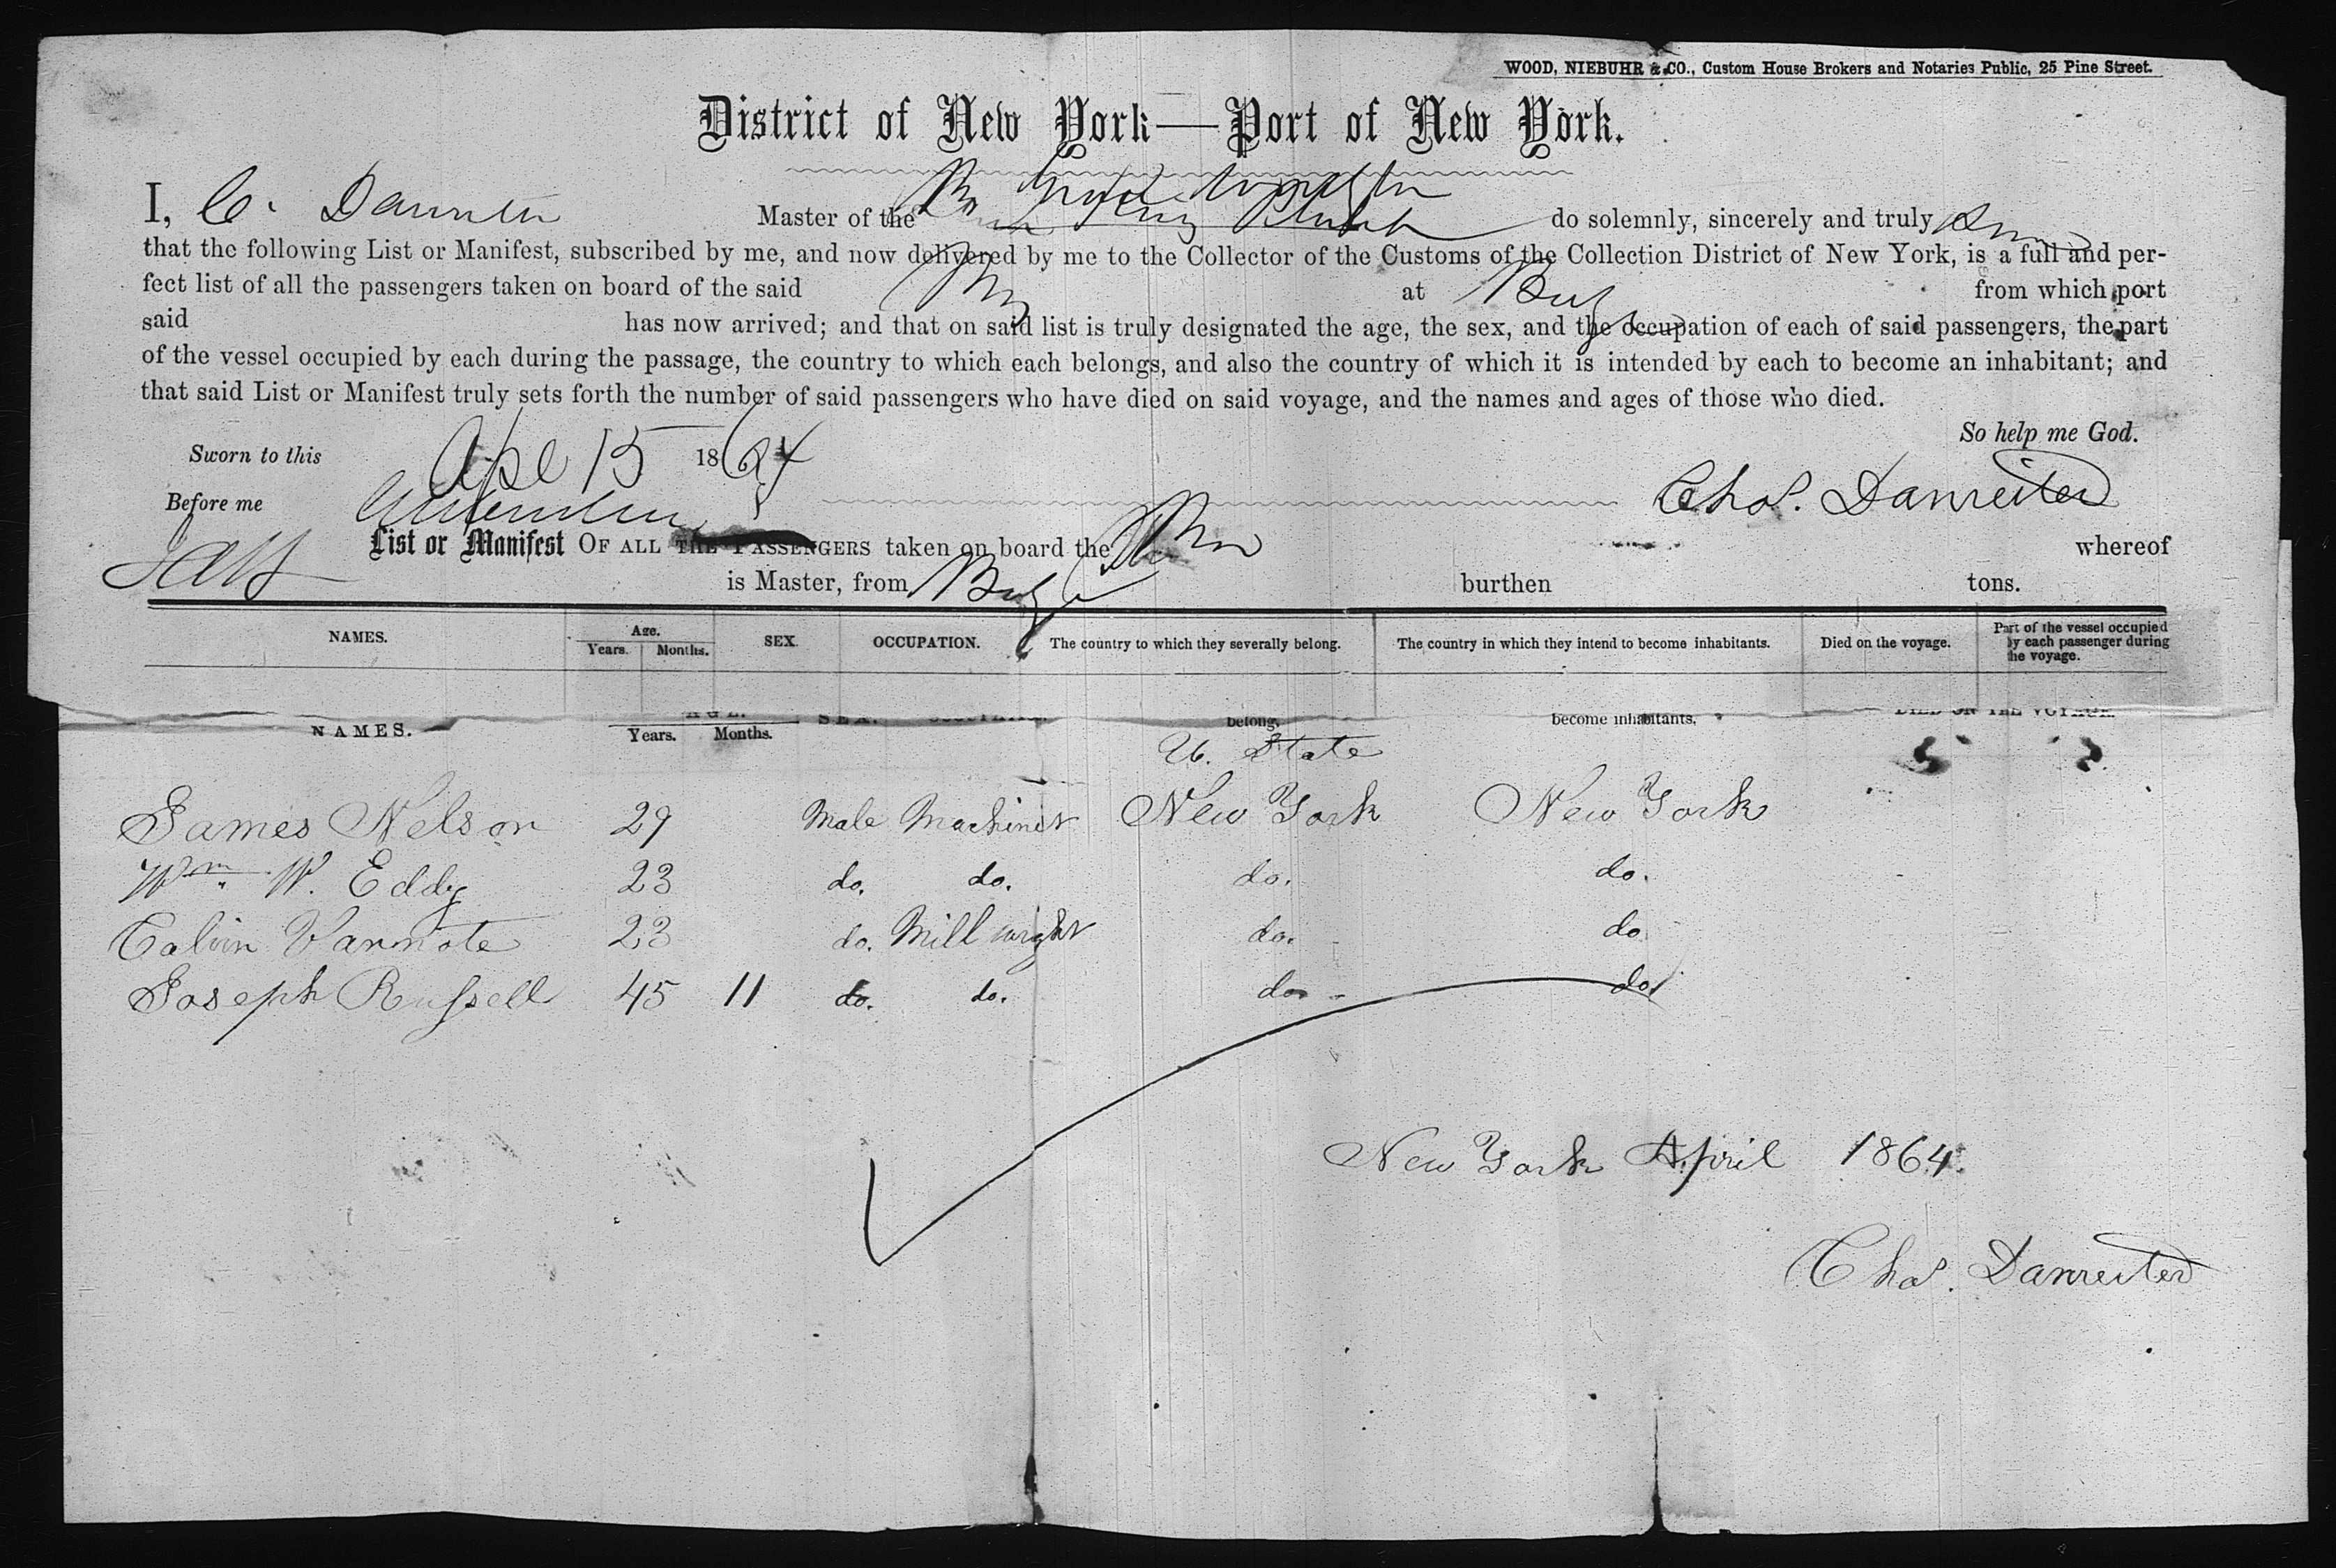 WOOD, NIEBUHR & CO., Custom House Brokers and Notaries Public, 25 Pine Street.
District of New York—Port of New York.
I, C. Master of the do solemnly, sincerely and truly
that the following List or Manifest, subscribed by me, and now delivered by me to the Collector of the Customs of the Collection District of New York, is a full and per-
fect list of all the passengers taken on board of the said at from which port
said has now arrived; and that on said list is truly designated the age, the sex, and the occupation of each of said passengers, the part
of the vessel occupied by each during the passage, the country to which each belongs, and also the country of which it is intended by each to become an inhabitant; and
that said List or Manifest truly sets forth the number of said passengers who have died on said voyage, and the names and ages of those who died.
So help me God.
Sworn to this Apl 15 1864
Before me Chas. Danreiter
List or Manifest OF ALL THE PASSENGERS taken on board the whereof
is Master, from burthen tons.
NAMES. Age. Years. Months. SEX. OCCUPATION. The country to which they severally belong. The country in which they intend to become inhabitants. Died on the voyage. Part of the vessel occupied by each passenger during the voyage.
NAMES. AGE. Years. Months. SEX. belong, become inhabitants, DIED ON THE VOYAGE.
U. State
James Nelson 29 Male Machinist New York New York
Wm. W. Eddy 23 do. do. do. do.
Calvin Vannote 23 do. Mill wright do. do
Joseph Russell 45 11 do. do. do. do.
New York April 1864.
Chas. Danreiter